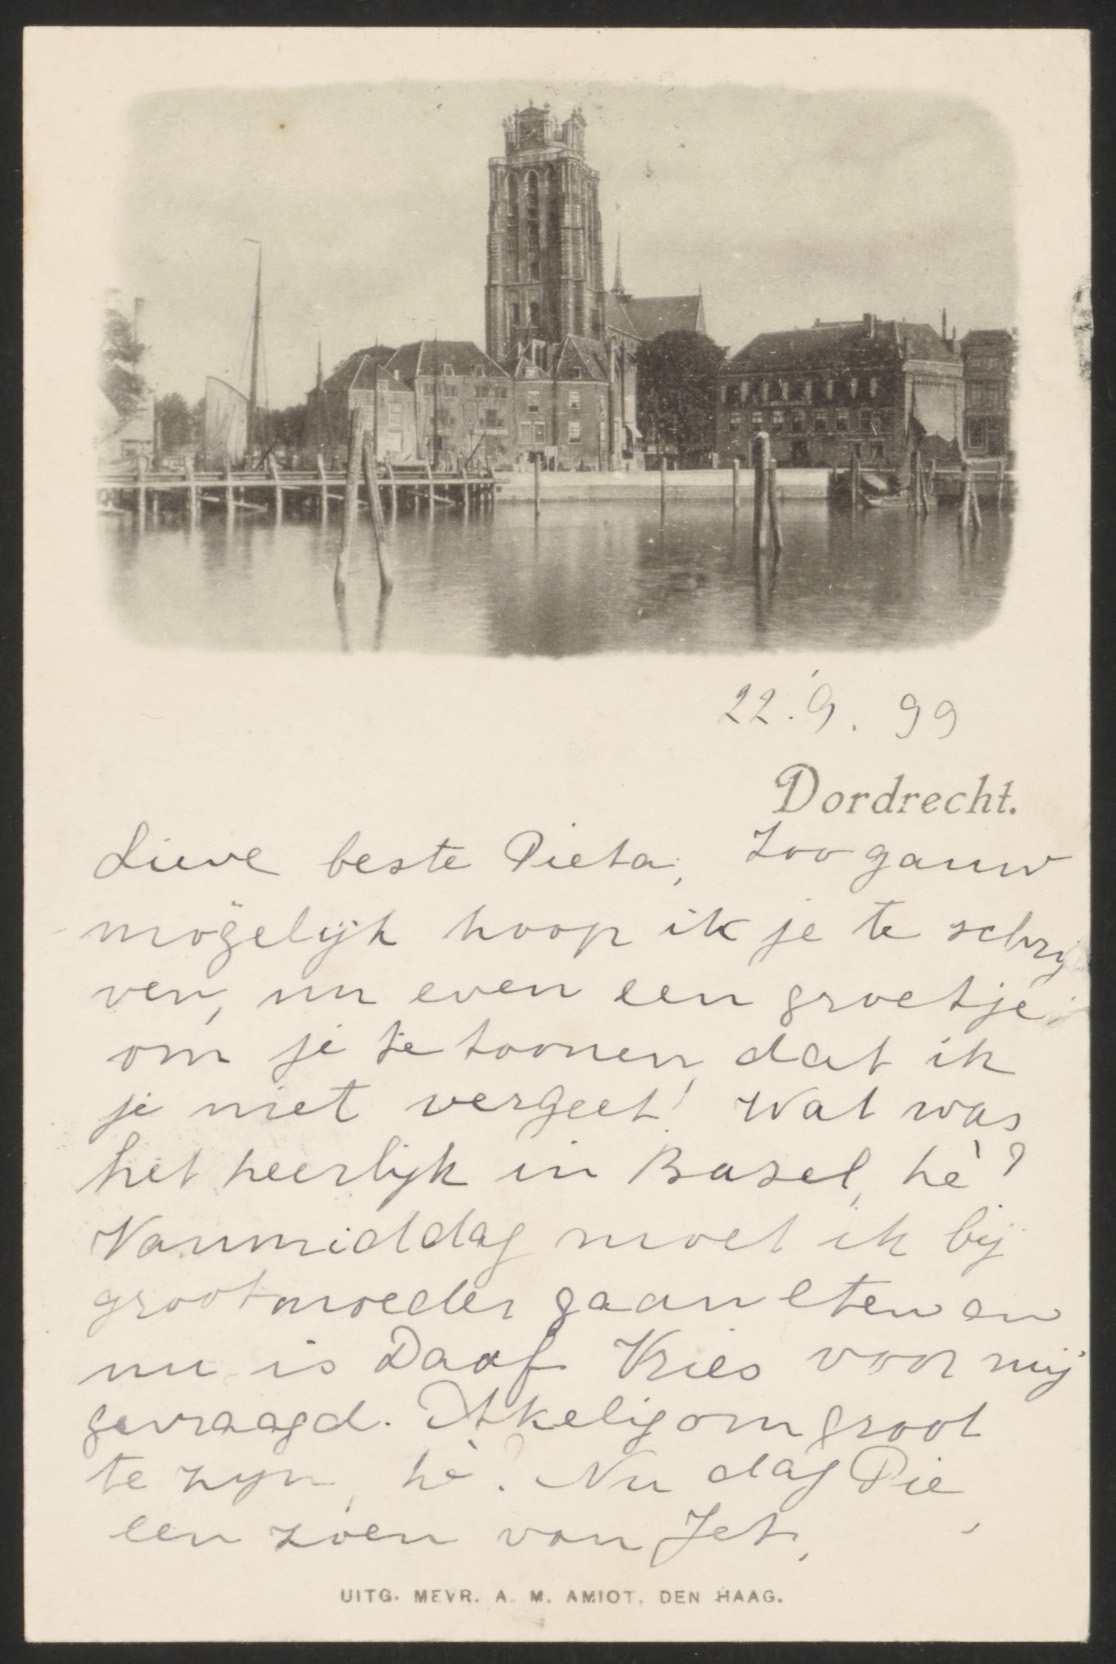 22.9.99
Dordrecht.
Lieve beste Pieta, Zoo gauw
mogelijk hoop ik je te schrij
ven, nu even een groetje
om je te toonen dat ik
je niet vergeet! Wat was
het heerlijk in Basel, hè?
Vanmiddag moet ik bij
grootmoeder gaan eten en
nu is Daaf Vries voor mij
gevraagd. Akelig om groot
te zijn, hè? Nu dag Pie,
een zoen van Jet,
UITG. MEVR. A. M. AMIOT, DEN HAAG.